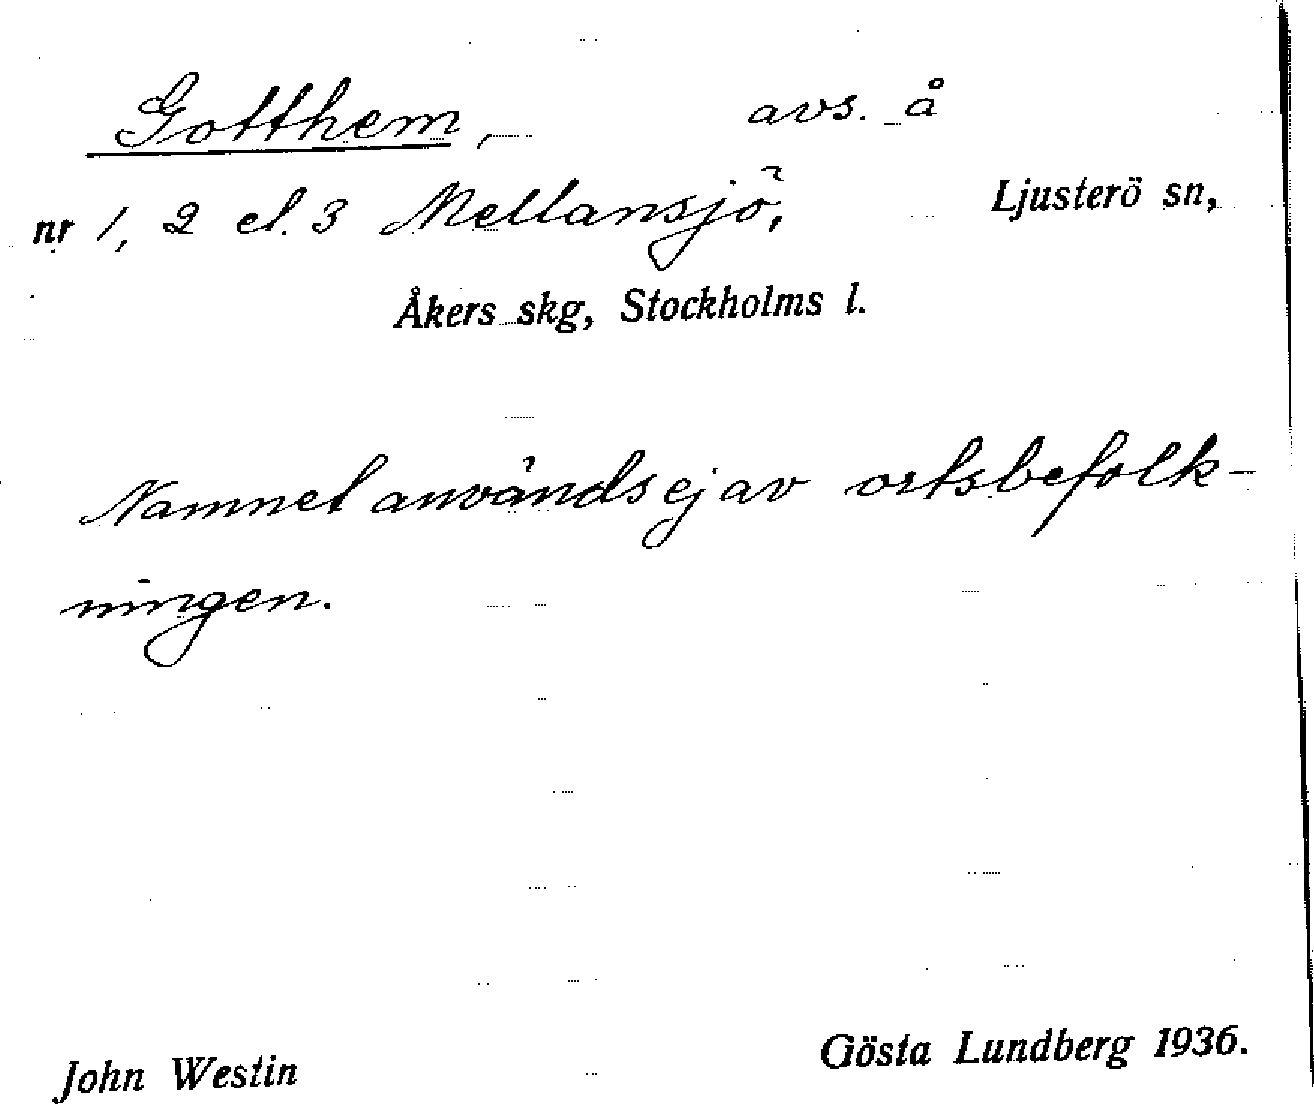 Gotthem, avs. å
nr 1, 2 el. 3 Mellansjö, Ljusterö sn,
Åkers skg, Stockholms l.
Namnet används ej av ortsbefolk-
ningen.
John Westin Gösta Lundberg 1936.